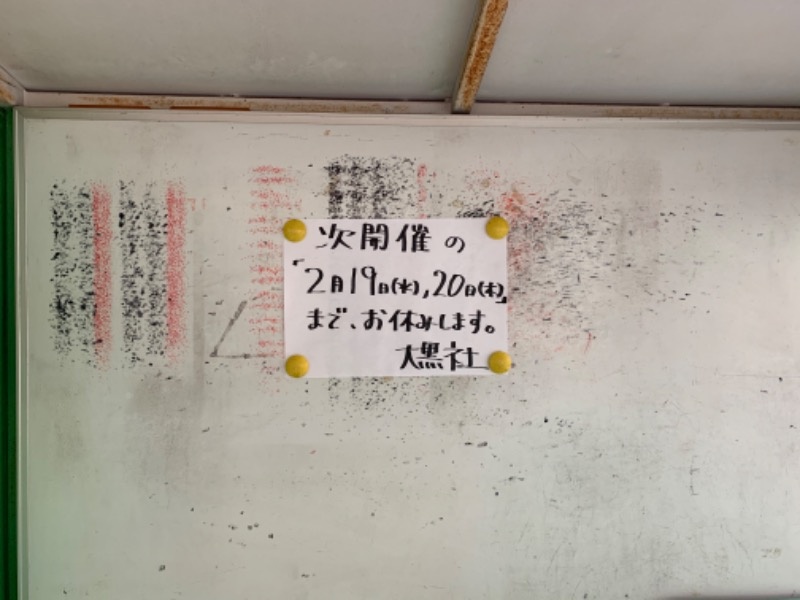 次開催の
「2月19日(水),20日(木)」
まで、お休みします。
大黒社